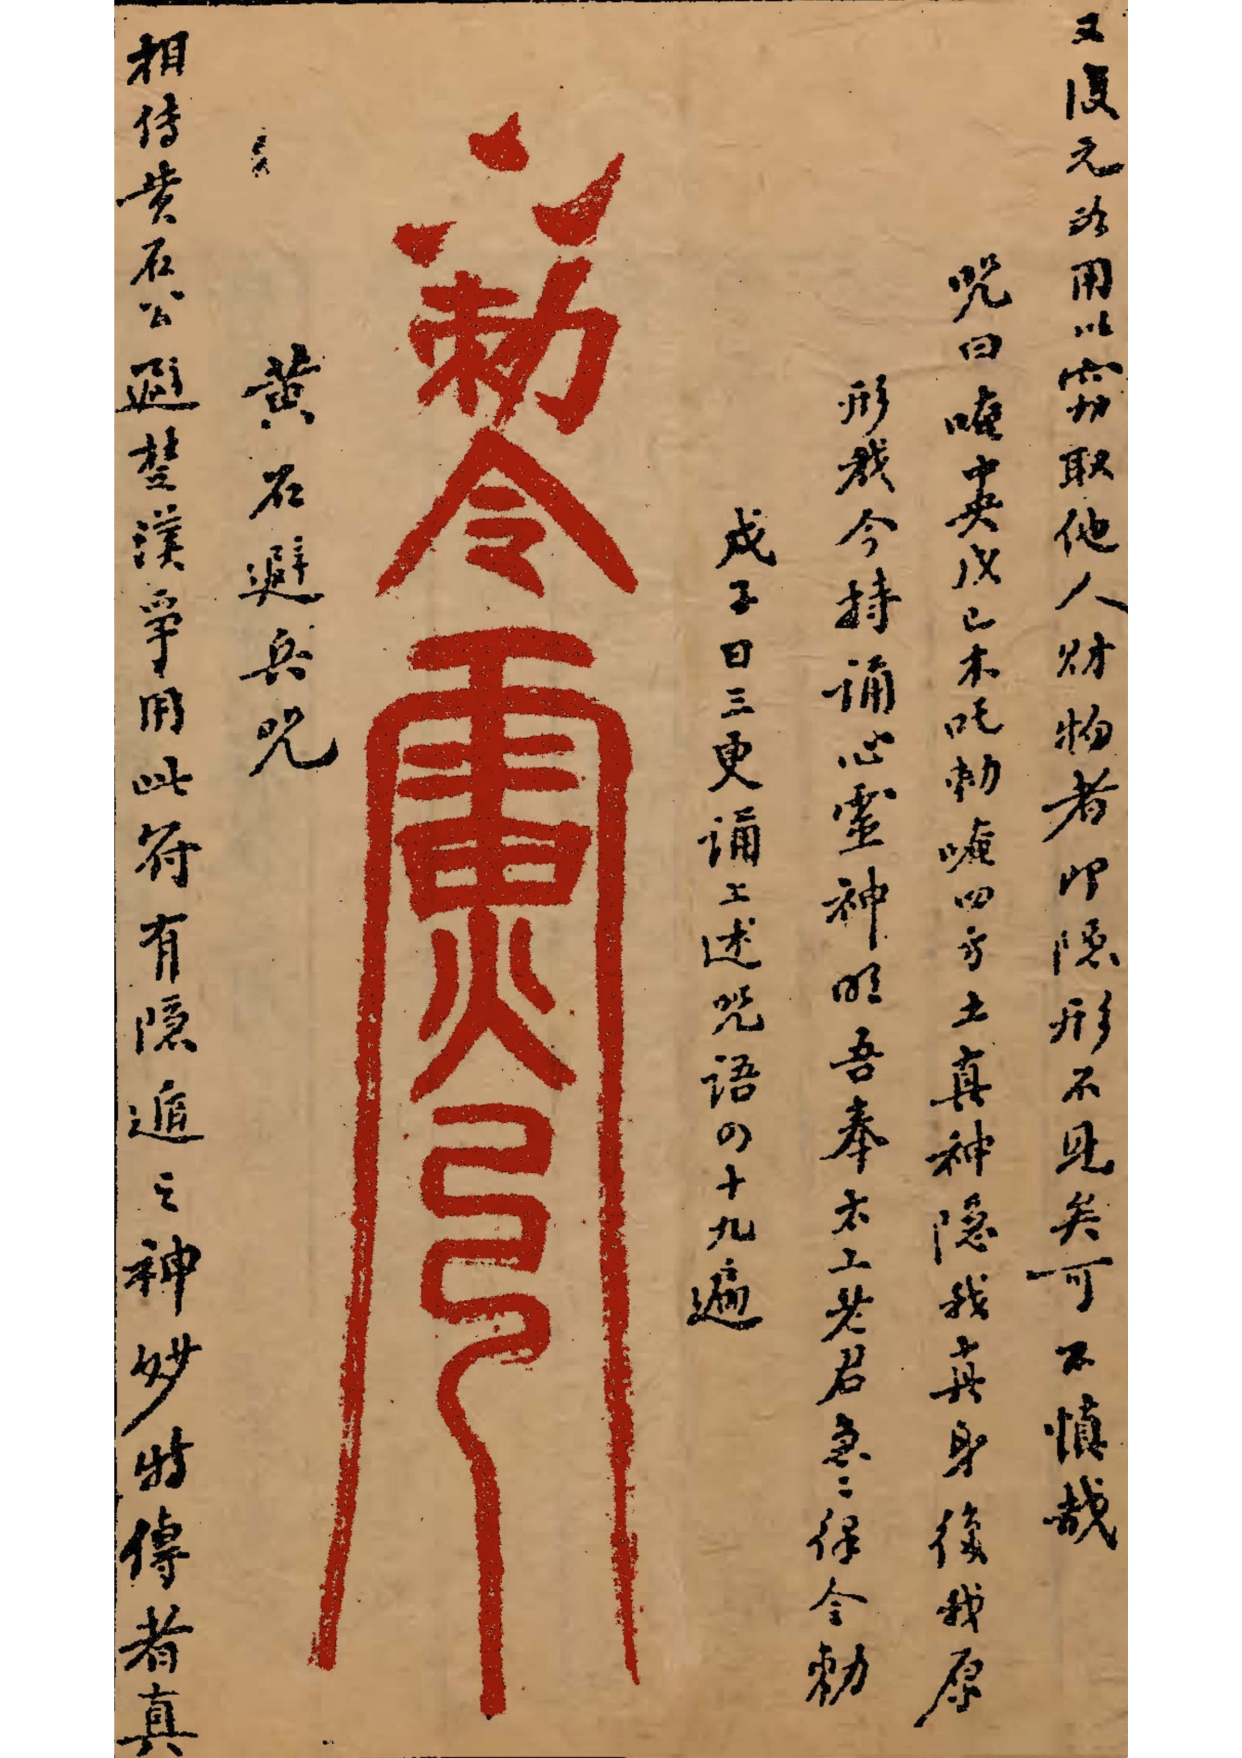 又復元如用以窃取他人财物者即隐形不見矣可不慎哉
咒曰唵中央戊己木吒勅唵四方土真神隐我真身復我原
形我今持誦心靈神明吾奉太上老君急〻律令勅
戊子日三更誦上述咒語四十九遍
勅令
黄石避兵咒
相传黄石公避楚漢爭用此符有隐遁之神妙特傳者真